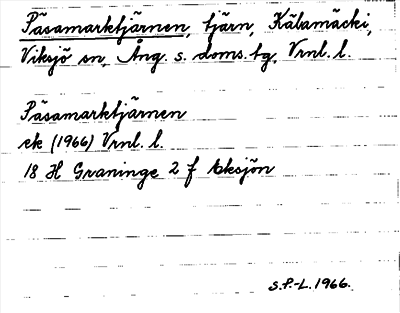 Päsamarktjärnen, tjärn, Kälamäcki,
Viksjö sn, Ång. s. doms. tg, Vrnl. l.
Päsamarktjärnen
ek (1966) Vrnl. l.
18 H Graninge 2 f Eksjön
S.P.-L. 1966.